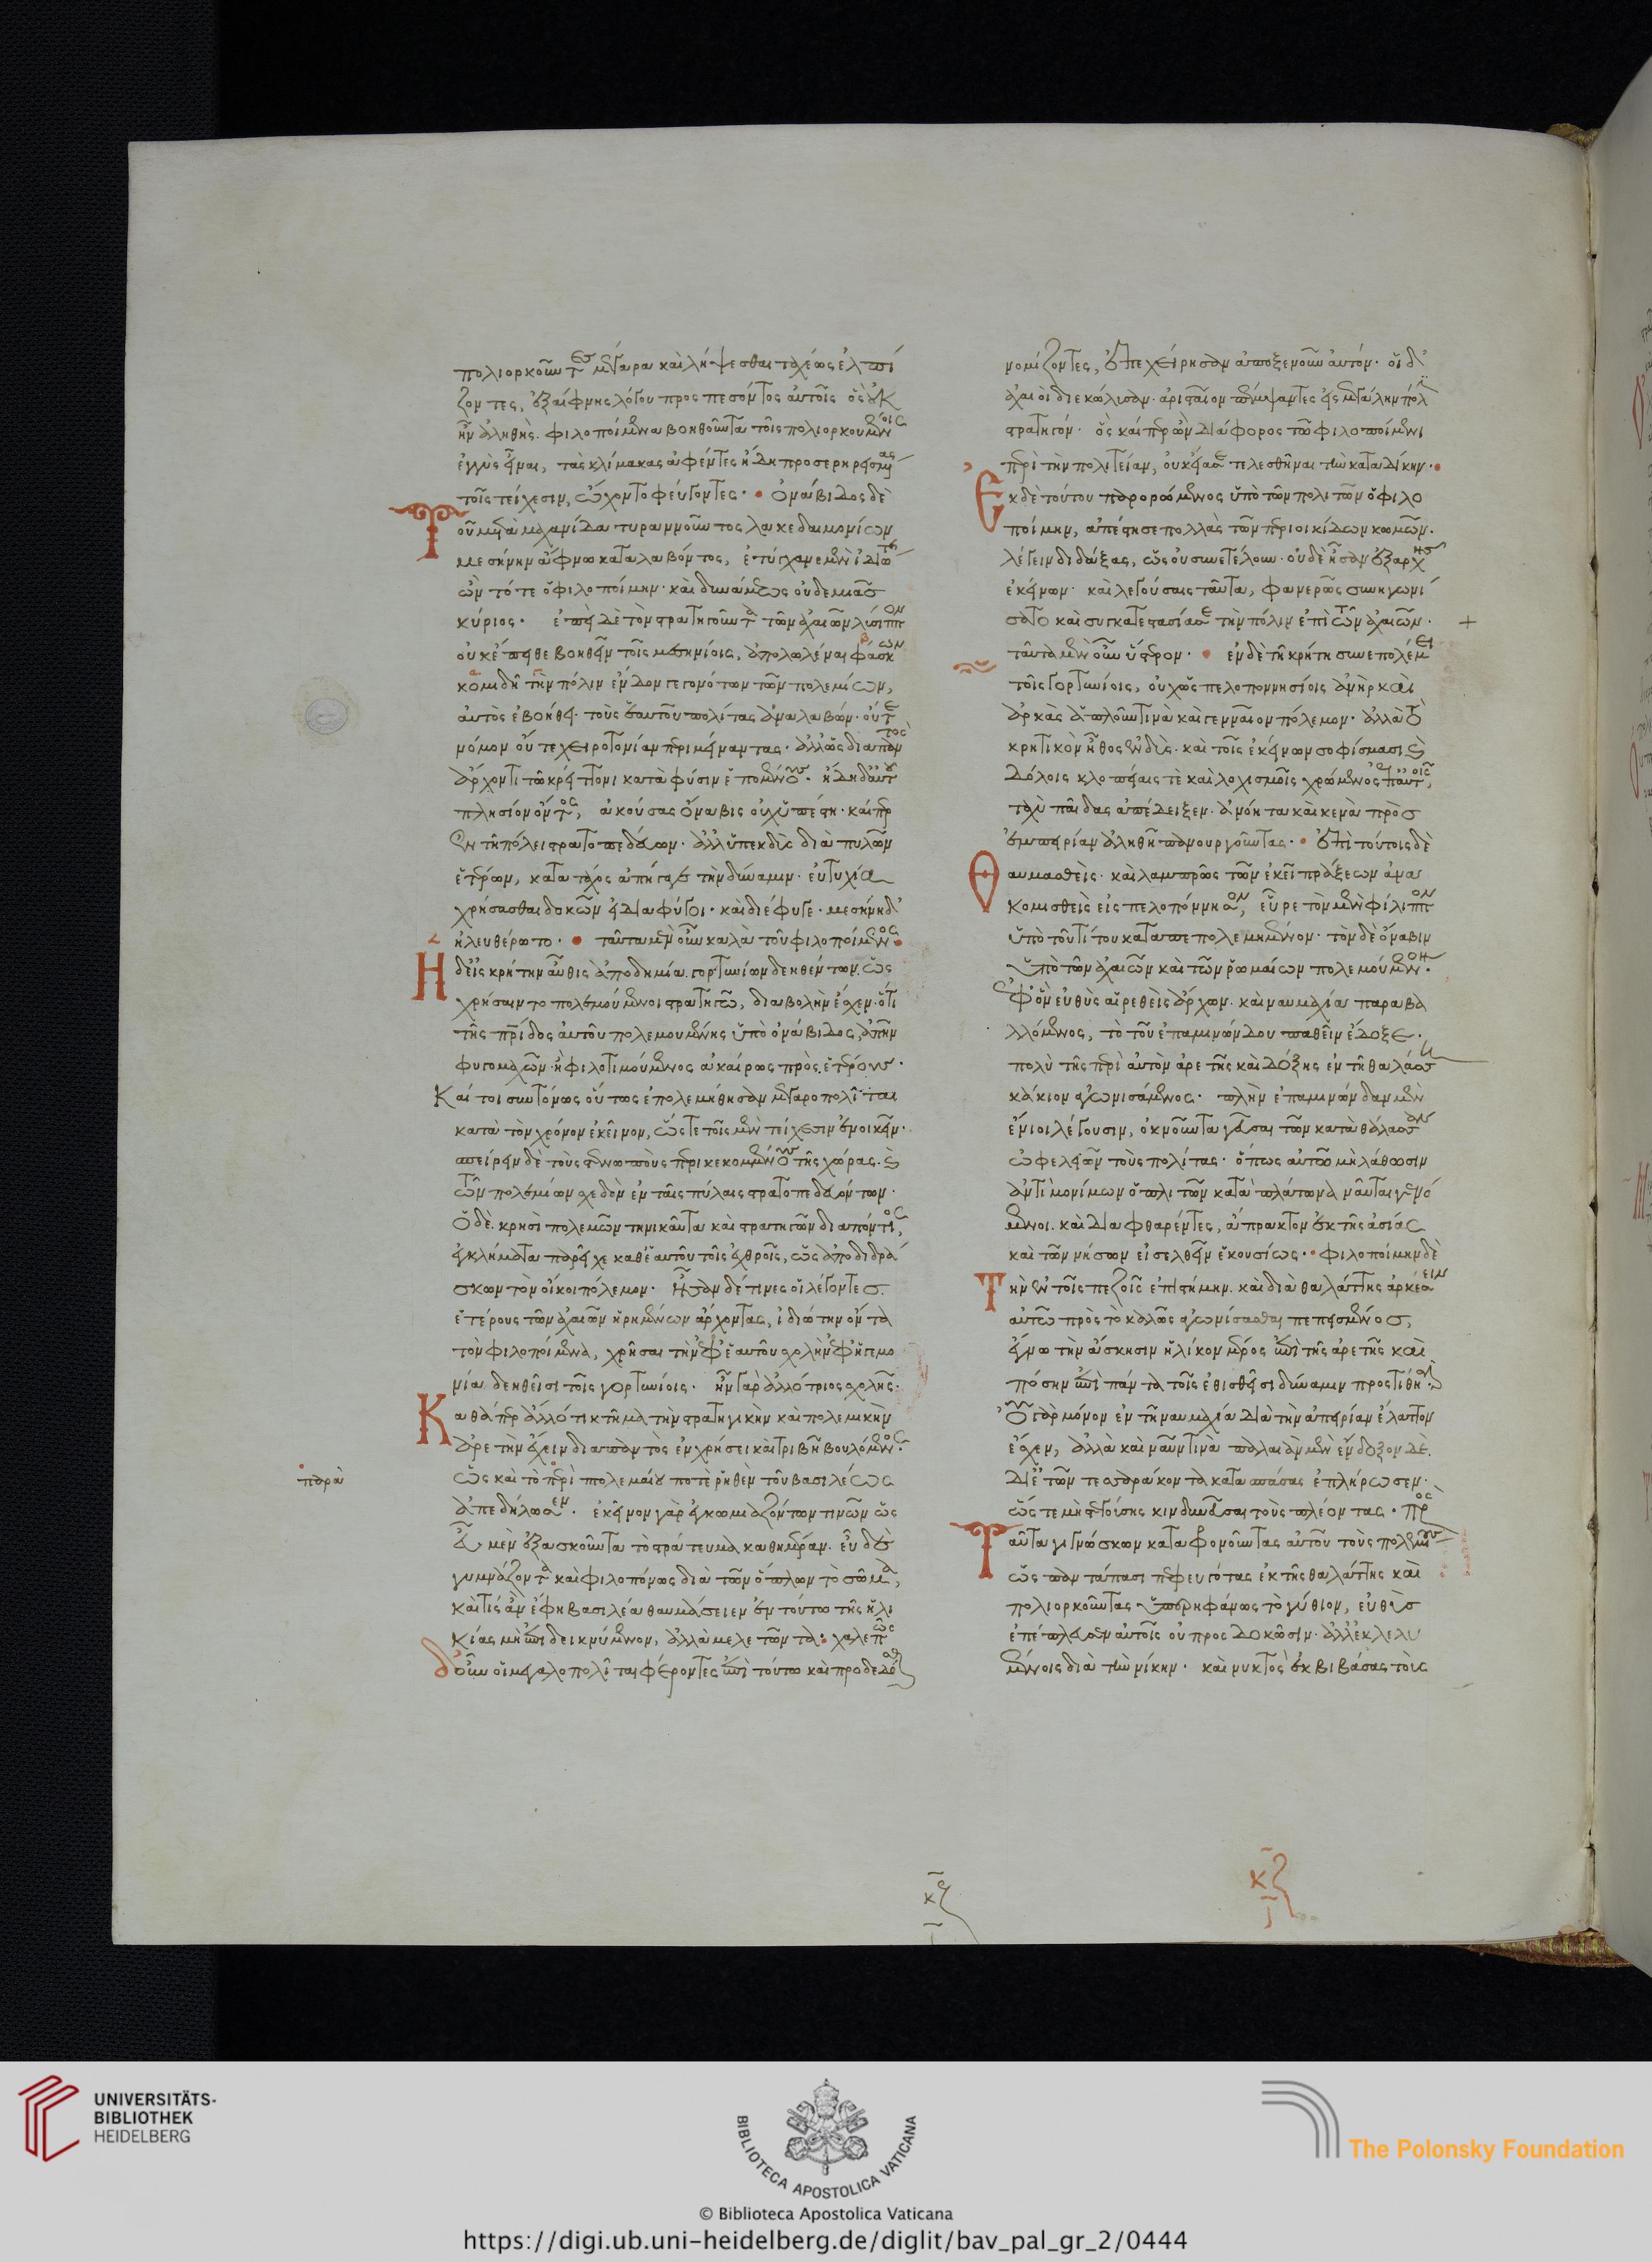 πολιορκοῦντες μέγαρα καὶ λήψεσθαι ταχέως ἐλπί
ζοντες, ἐξαίφνης λόγου προσπεσόντος αὐτοῖς ὃς οὐκ
ἦν ἀληθὴς. φιλοποίμενα βοηθοῦντα τοῖς πολιορκουμένοις
ἐγγὺς εἶναι, τὰς κλίμακας ἀφέντες ἤδη προσερηρεισμένας
τοῖς τείχεσιν, ὤχοντο φεύγοντες. ὁ νάβιδος δὲ
Τοῦ μετὰ μαχανίδαν τυραννοῦντος λακεδαιμονίων
μεσήνην ἄφνω καταλαβόντος, ἐτύγχανε μὲν ἰδιώτης
ὢν τότε ὁ φιλοποίμην. καὶ δυνάμεως οὐδεμιᾶς
κύριος. ἐπεὶ δὲ τὸν στρατηγοῦντα τῶν ἀχαιῶν λύσιππον
οὐκ ἔπειθε βοηθεῖν τοῖς μεσηνίοις, ἀπολωλέναι φάσκων
κομιδῆ τὴν πόλιν ἔνδον γεγονότων τῶν πολεμίων,
αὐτὸς ἐβοήθει. τοὺς ἑαυτοῦ πολίτας ἀναλαβών. οὔτε
νόμον οὔτε χειροτονίαν περιμείναντας. ἀλλ' ὡς διαπαντὸς
ἄρχοντι τῶ κρείττονι κατὰ φύσιν ἑπομένους. ἤδη δ' αὐτοῦ
πλησίον ὄντος, ἀκούσας ὁ νάβις οὐχ ὑπέστη. καίπερ
ἐν τῆ πόλει στρατοπεδεύων. ἀλλ' ὑπεκδὺς διὰ πυλῶν
ἑτέρων, κατὰ τάχος ἀπήγαγε τὴν δύναμιν. εὐτυχία
χρήσασθαι δοκῶν εἰ διαφύγοι. καὶ διέφυγε. μεσήνη δ'
ἠλευθέρωτο. ταῦτα μὲν οὖν καλὰ τοῦ φιλοποίμενος.
Ἡ δ' εἰς κρήτην αὖθις ἀποδημία. γορτυνίων δεηθέντων. ὡς
χρήσαιντο πολεμούμενοι στρατηγῶ, διαβολὴν ἔσχεν. ὅτι
τῆς πατρίδος αὐτοῦ πολεμουμένης ὑπὸ νάβιδος, ἀπῆν
φυγομαχῶν. ἢ φιλοτιμούμενος ἀκαίρως πρὸς ἑτέρους.
Καίτοι συντόμως οὕτως ἐπολεμήθησαν μεγαλοπολῖται
κατὰ τὸν χρόνον ἐκεῖνον, ὥστε τοῖς μὲν τείχεσιν ἐνοικεῖν.
σπείρειν δὲ τοὺς στενωποὺς περικεκομμένους τῆς χώρας. καὶ
τῶν πολεμίων σχεδὸν ἐν ταῖς πύλαις στρατοπεδευόντων.
Ὁ δὲ κρησὶ πολεμῶν τηνικαῦτα καὶ στρατηγῶν διαπόντιος,
ἐγκλήματα παρεῖχε καθ' ἑαυτοῦ τοῖς ἐχθροῖς, ὡς ἀποδιδρά
σκων τὸν οἴκοι πόλεμον. Ἦσαν δέ τινες οἱ λέγοντες
ἑτέρους τῶν ἀχαιῶν ἡρημένων ἄρχοντας, ἰδιώτην ὄντα
τὸν φιλοποίμενα, χρῆσαι τὴν ἐφ' ἑαυτοῦ σχολὴν ἐφ' ἡγεμο
νία δεηθεῖσι τοῖς γορτυνίοις. ἦν γὰρ ἀλλότριος σχολῆς.
Καθάπερ ἄλλό τι κτῆμα τὴν στρατηγικὴν καὶ πολεμικὴν
ἀρετὴν ἔχειν διαπαντὸς ἐν χρήσει καὶ τριβῆ βουλόμενος.
παρὰ
ὡς καὶ τὸ περὶ πτολεμαίου ποτὲ ῥηθὲν τοῦ βασιλέως
ἀπεδήλωσεν. ἐκεῖνον γὰρ ἐγκωμιαζόντων τινῶν ὡς
εὖ μὲν ἐξασκοῦντα τὸ στράτευμα καθημέραν. εὖ δὲ
γυμνάζοντα καὶ φιλοπόνως διὰ τῶν ὅπλων τὸ σῶμα,
καὶ τίς ἂν ἔφη βασιλέα θαυμάσειεν ἐν τούτω τῆς ἡλι
κίας μὴ ἐπιδεικνύμενον, ἀλλὰ μελετῶντα· χαλεπῶς
δ' οὖν οἱ μεγαλοπολῖται φέροντες ἐπὶ τούτω καὶ προδεδόσθαι
νομίζοντες, ἐπεχείρησαν ἀποξενοῦν αὐτόν. οἱ δ'
ἀχαιοὶ διεκώλυσαν. ἀρίσταινον πέμψαντες εἰς μεγάλην πόλιν
στρατηγόν. ὃς καίπερ ὢν διάφορος τῶ φιλοποίμενι
περὶ τὴν πολιτείαν, οὐκ εἴασε τελεσθῆναι τὴν καταδίκην.
Ἐκ δὲ τούτου παρορώμενος ὑπὸ τῶν πολιτῶν ὁ φιλο
ποίμην, ἀπέστησε πολλὰς τῶν περιοικίδων κωμῶν.
λέγειν διδάξας, ὡς οὐ συνετέλουν. οὐδὲ ἦσαν ἐξαρχῆς
ἐκείνων. καὶ λεγούσαις ταῦτα, φανερῶς συνηγωνί
σατο καὶ συγκατεστασίασε τὴν πόλιν ἐπὶ τῶν ἀχαιῶν.
ταῦτα μὲν οὖν ὕστερον. ἐν δὲ τῆ κρήτη συνεπολέμει
τοῖς γορτυνίοις, οὐχ ὡς πελοποννησίοις ἀνὴρ καὶ
ἀρκὰς ἁπλοῦν τινὰ καὶ γενναῖον πόλεμον. ἀλλὰ τὸ
κρητικὸν ἦθος ἐνδὺς. καὶ τοῖς ἐκείνων σοφίσμασι καὶ
δόλοις κλοπείαις τὲ καὶ λοχισμοῖς χρώμενος ἐπ' αὐτοὺς,
ταχὺ παῖδας ἀπέδειξεν. ἀνόητα καὶ κενὰ πρὸς
ἐμπειρίαν ἀληθῆ πανουργοῦντας. Ἐπὶ τούτοις δὲ
Θαυμασθεὶς. καὶ λαμπρῶς τῶν ἐκεῖ πράξεων ἀνα
κομισθεὶς εἰς πελοπόννησον, εὗρε τὸν μὲν φίλιππον
ὑπὸ τοῦ τίτου καταπεπολεμημένον. τὸν δὲ νάβιν
ὑπὸ τῶν ἀχαιῶν καὶ τῶν ῥωμαίων πολεμούμενον.
Ἐφ' ὃν εὐθὺς αἱρεθεὶς ἄρχων. καὶ ναυμαχία παραβα
λλόμενος, τὸ τοῦ ἐπαμινώνδου παθεῖν ἔδοξε.
πολὺ τῆς περὶ αὐτὸν ἀρετῆς καὶ δόξης ἐν τῆ θαλάσση
κάκιον ἀγωνισάμενος. πλὴν ἐπαμινώνδαν μὲν
ἔνιοι λέγουσιν, ὀκνοῦντα γεῦσαι τῶν κατὰ θάλασσαν
ὠφελειῶν τοὺς πολίτας. ὅπως αὐτῶ μὴ λάθωσιν
ἀντὶ μονίμων ὁπλιτῶν κατὰ πλάτωνα ναῦται γενό
μενοι. καὶ διαφθαρέντες, ἄπρακτον ἐκ τῆς ἀσίας
καὶ τῶν νήσων εἰσελθεῖν ἑκουσίως. φιλοποίμην δὲ
Τὴν ἐν τοῖς πεζοῖς ἐπιστήμην. καὶ διὰ θαλάττης ἀρκέσειν
αὐτῶ πρὸς τὸ καλῶς ἀγωνίσασθαι πεπεισμένος,
ἔγνω τὴν ἄσκησιν ἡλίκον μέρος ἐστὶ τῆς ἀρετῆς καὶ
πόσην ἐπὶ πάντα τοῖς ἐθισθεῖσι δύναμιν προστίθησιν.
Οὐ γὰρ μόνον ἐν τῆ ναυμαχία διὰ τὴν ἀπειρίαν ἔλαττον
ἔσχεν, ἀλλὰ καὶ ναῦν τινὰ παλαιὰν μὲν ἔνδοξον δὲ.
δι' ἐτῶν τεσσαράκοντα κατασπάσας ἐπλήρωσεν.
ὥστε μὴ στεγούσης κινδυνεῦσαι τοὺς πλέοντας. πρὸς
Ταῦτα γιγνώσκων καταφρονοῦντας αὐτοῦ τοὺς πολεμίους
ὡς παντάπασι πεφευγότας ἐκ τῆς θαλάττης καὶ
πολιορκοῦντας ὑπερηφάνως τὸ γύθιον, εὐθὺς
ἐπέπλευσεν αὐτοῖς οὐ προσδοκῶσιν. ἀλλ' ἐκλελυ
μένοις διὰ τὴν νίκην. καὶ νυκτὸς ἐκβιβάσας τοὺς
UNIVERSITÄTS-
BIBLIOTHEK
HEIDELBERG
BIBLIOTECA APOSTOLICA VATICANA
The Polonsky Foundation
© Biblioteca Apostolica Vaticana
https://digi.ub.uni-heidelberg.de/diglit/bav_pal_gr_2/0444